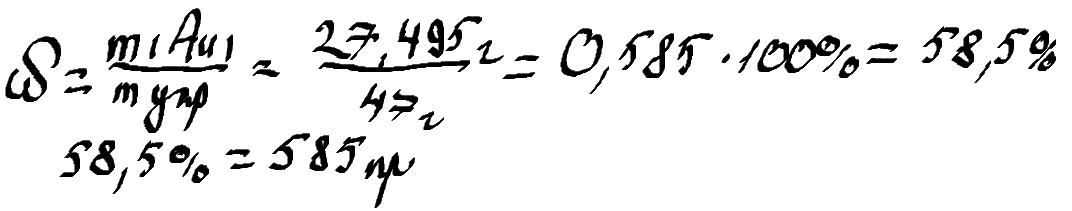 ω = m(Au) / m укр = 27,495 г / 47 г = 0,585 · 100% = 58,5%
58,5% = 585 пр